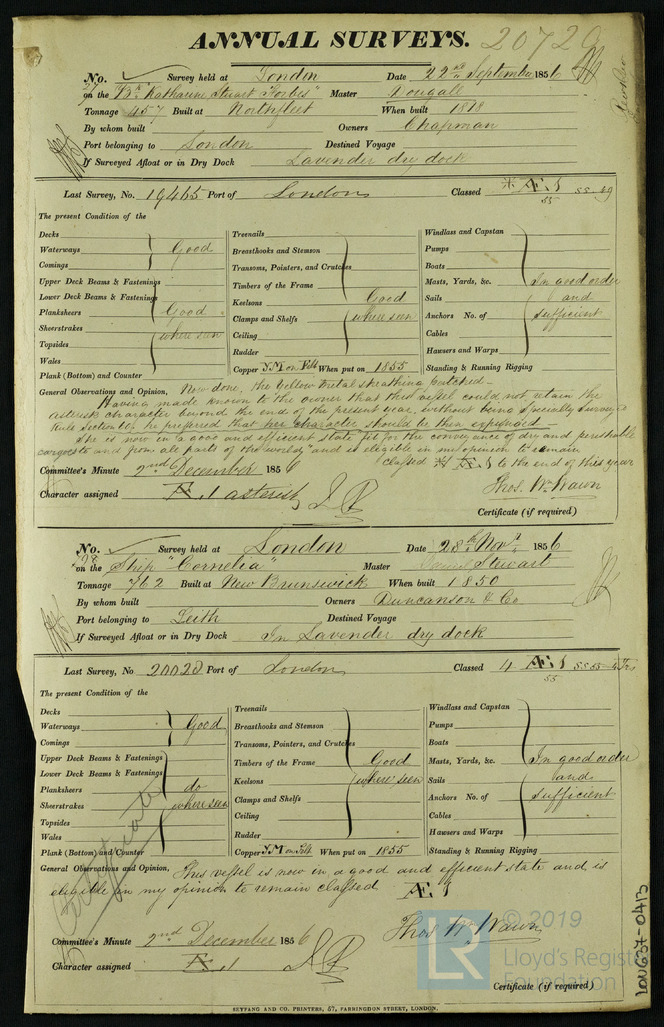 ANNUAL SURVEYS. 20729
No. Survey held at London Date 22nd September 1856
27 on the "Bk Katharine Stuart Forbes" Master Dougall
Tonnage 457 Built at Northfleet When built 1818
By whom built Owners Chapman
Port belonging to London Destined Voyage
If Surveyed Afloat or in Dry Dock Lavender dry dock
Last Survey, No. 19465 Port of London Classed Æ 1 55 - 59
55
The present Condition of the
Decks Treenails Windlass and Capstan
Waterways Good Breasthooks and Stemson Pumps
Comings Transoms, Pointers, and Crutches Boats
Upper Deck Beams & Fastenings Timbers of the Frame Masts, Yards, &c. In good order
Lower Deck Beams & Fastenings Keelsons Good Sails and
Planksheers Good Clamps and Shelfs where seen Anchors No. of sufficient
Sheerstrakes where seen Ceiling Cables
Topsides Rudder Hawsers and Warps
Wales Copper Y.M on Felt When put on 1855 Standing & Running Rigging
Plank (Bottom) and Counter
General Observations and Opinion, Now done, the Yellow Metal sheathing patched -
Having made known to the owner that this vessel could not retain the
asterisk character beyond the end of the present year, without being Specially Surveyed
Rule Section 61, he preferred that her character should be then expunged -
She is now in a good and efficient state fit for the conveyance of dry and perishable
cargoes to and from all parts of the world, and is eligible in my opinion to remain
classed Æ 1 to the end of this year
Committee's Minute 2nd December 1856
Character assigned Æ 1 asterisk Thos. Wm Wawn
Certificate (if required)
No. Survey held at London Date 28th Novr 1856
28 on the Ship "Cornelia" Master Stewart
Tonnage 762 Built at New Brunswick When built 1850
By whom built Owners Duncanson & Co
Port belonging to Leith Destined Voyage
If Surveyed Afloat or in Dry Dock In Lavender dry dock
Last Survey, No 20028 Port of London Classed 4 Æ 1 55 55 - 4 Yrs
55
The present Condition of the
Decks Treenails Windlass and Capstan
Waterways Good Breasthooks and Stemson Pumps
Comings Transoms, Pointers, and Crutches Boats
Upper Deck Beams & Fastenings Timbers of the Frame Good Masts, Yards, &c. In good order
Lower Deck Beams & Fastenings Keelsons where seen Sails and
Planksheers do Clamps and Shelfs Anchors No. of sufficient
Sheerstrakes where seen Ceiling Cables
Topsides Rudder Hawsers and Warps
Wales Copper Y.M on Felt When put on 1855 Standing & Running Rigging
Plank (Bottom) and Counter
Certificate
General Observations and Opinion, This vessel is now in a good and efficient state and is
eligible in my opinion to remain classed Æ 1
Thos. Wm Wawn
Committee's Minute 2nd December 1856
Character assigned Æ 1
Certificate (if required)
SEYFANG AND CO. PRINTERS, 57, FARRINGDON STREET, LONDON.
LR © 2019
Lloyd's Register
Foundation
LON637-0413